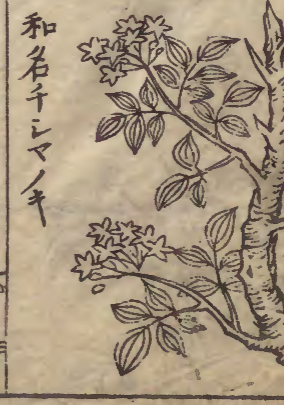 和名チシヤノキ